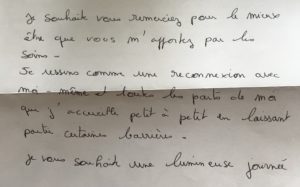 Je souhaite vous remercier pour le mieux
être que vous m'apportez par les
soins -
Je ressens comme une reconnexion avec
moi-même et toutes les parts de moi
que j'accueille petit à petit en laissant
partir certaines barrières -
Je vous souhaite une lumineuse journée